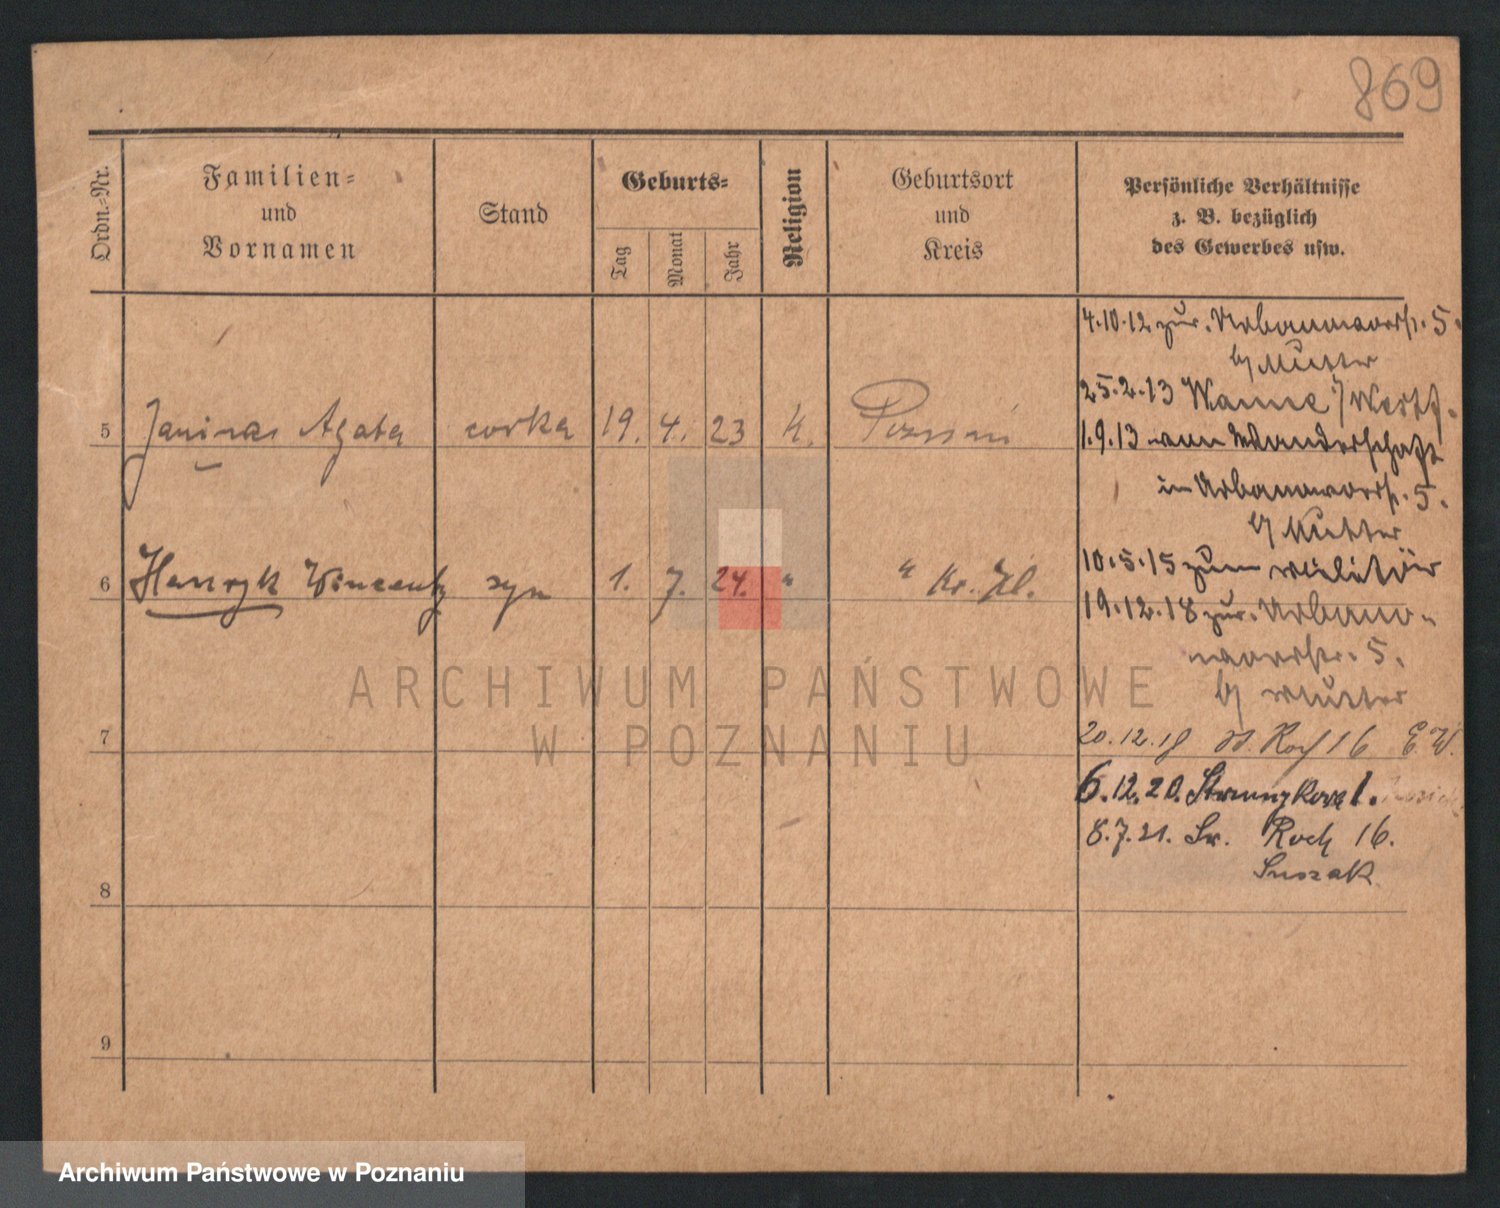 869
Ordn.-Nr.
Familien-
und
Vornamen
Stand
Geburts-
Tag
Monat
Jahr
Religion
Geburtsort
und
Kreis
Persönliche Verhältnisse
z. B. bezüglich
des Gewerbes usw.
4.10.12 zur. 5.
b/ Mutter
25.2.13 Wanne / Westf.
1.9.13 von Wanderschaft
in 5.
b/ Mutter
10.5.15 zum Militär
19.12.18 zur.
5.
b/ Mutter
20.12.18 St. Roch 16 E.W.
6.12.20. 1.
8.7.21. Św. Roch 16.
5 Janina Agata corka 19. 4. 23 k. Poznań
6 Henryk Wincenty syn 1. 7. 24. " " Kr.
7
8
9
ARCHIWUM PAŃSTWOWE
W POZNANIU
Archiwum Państwowe w Poznaniu